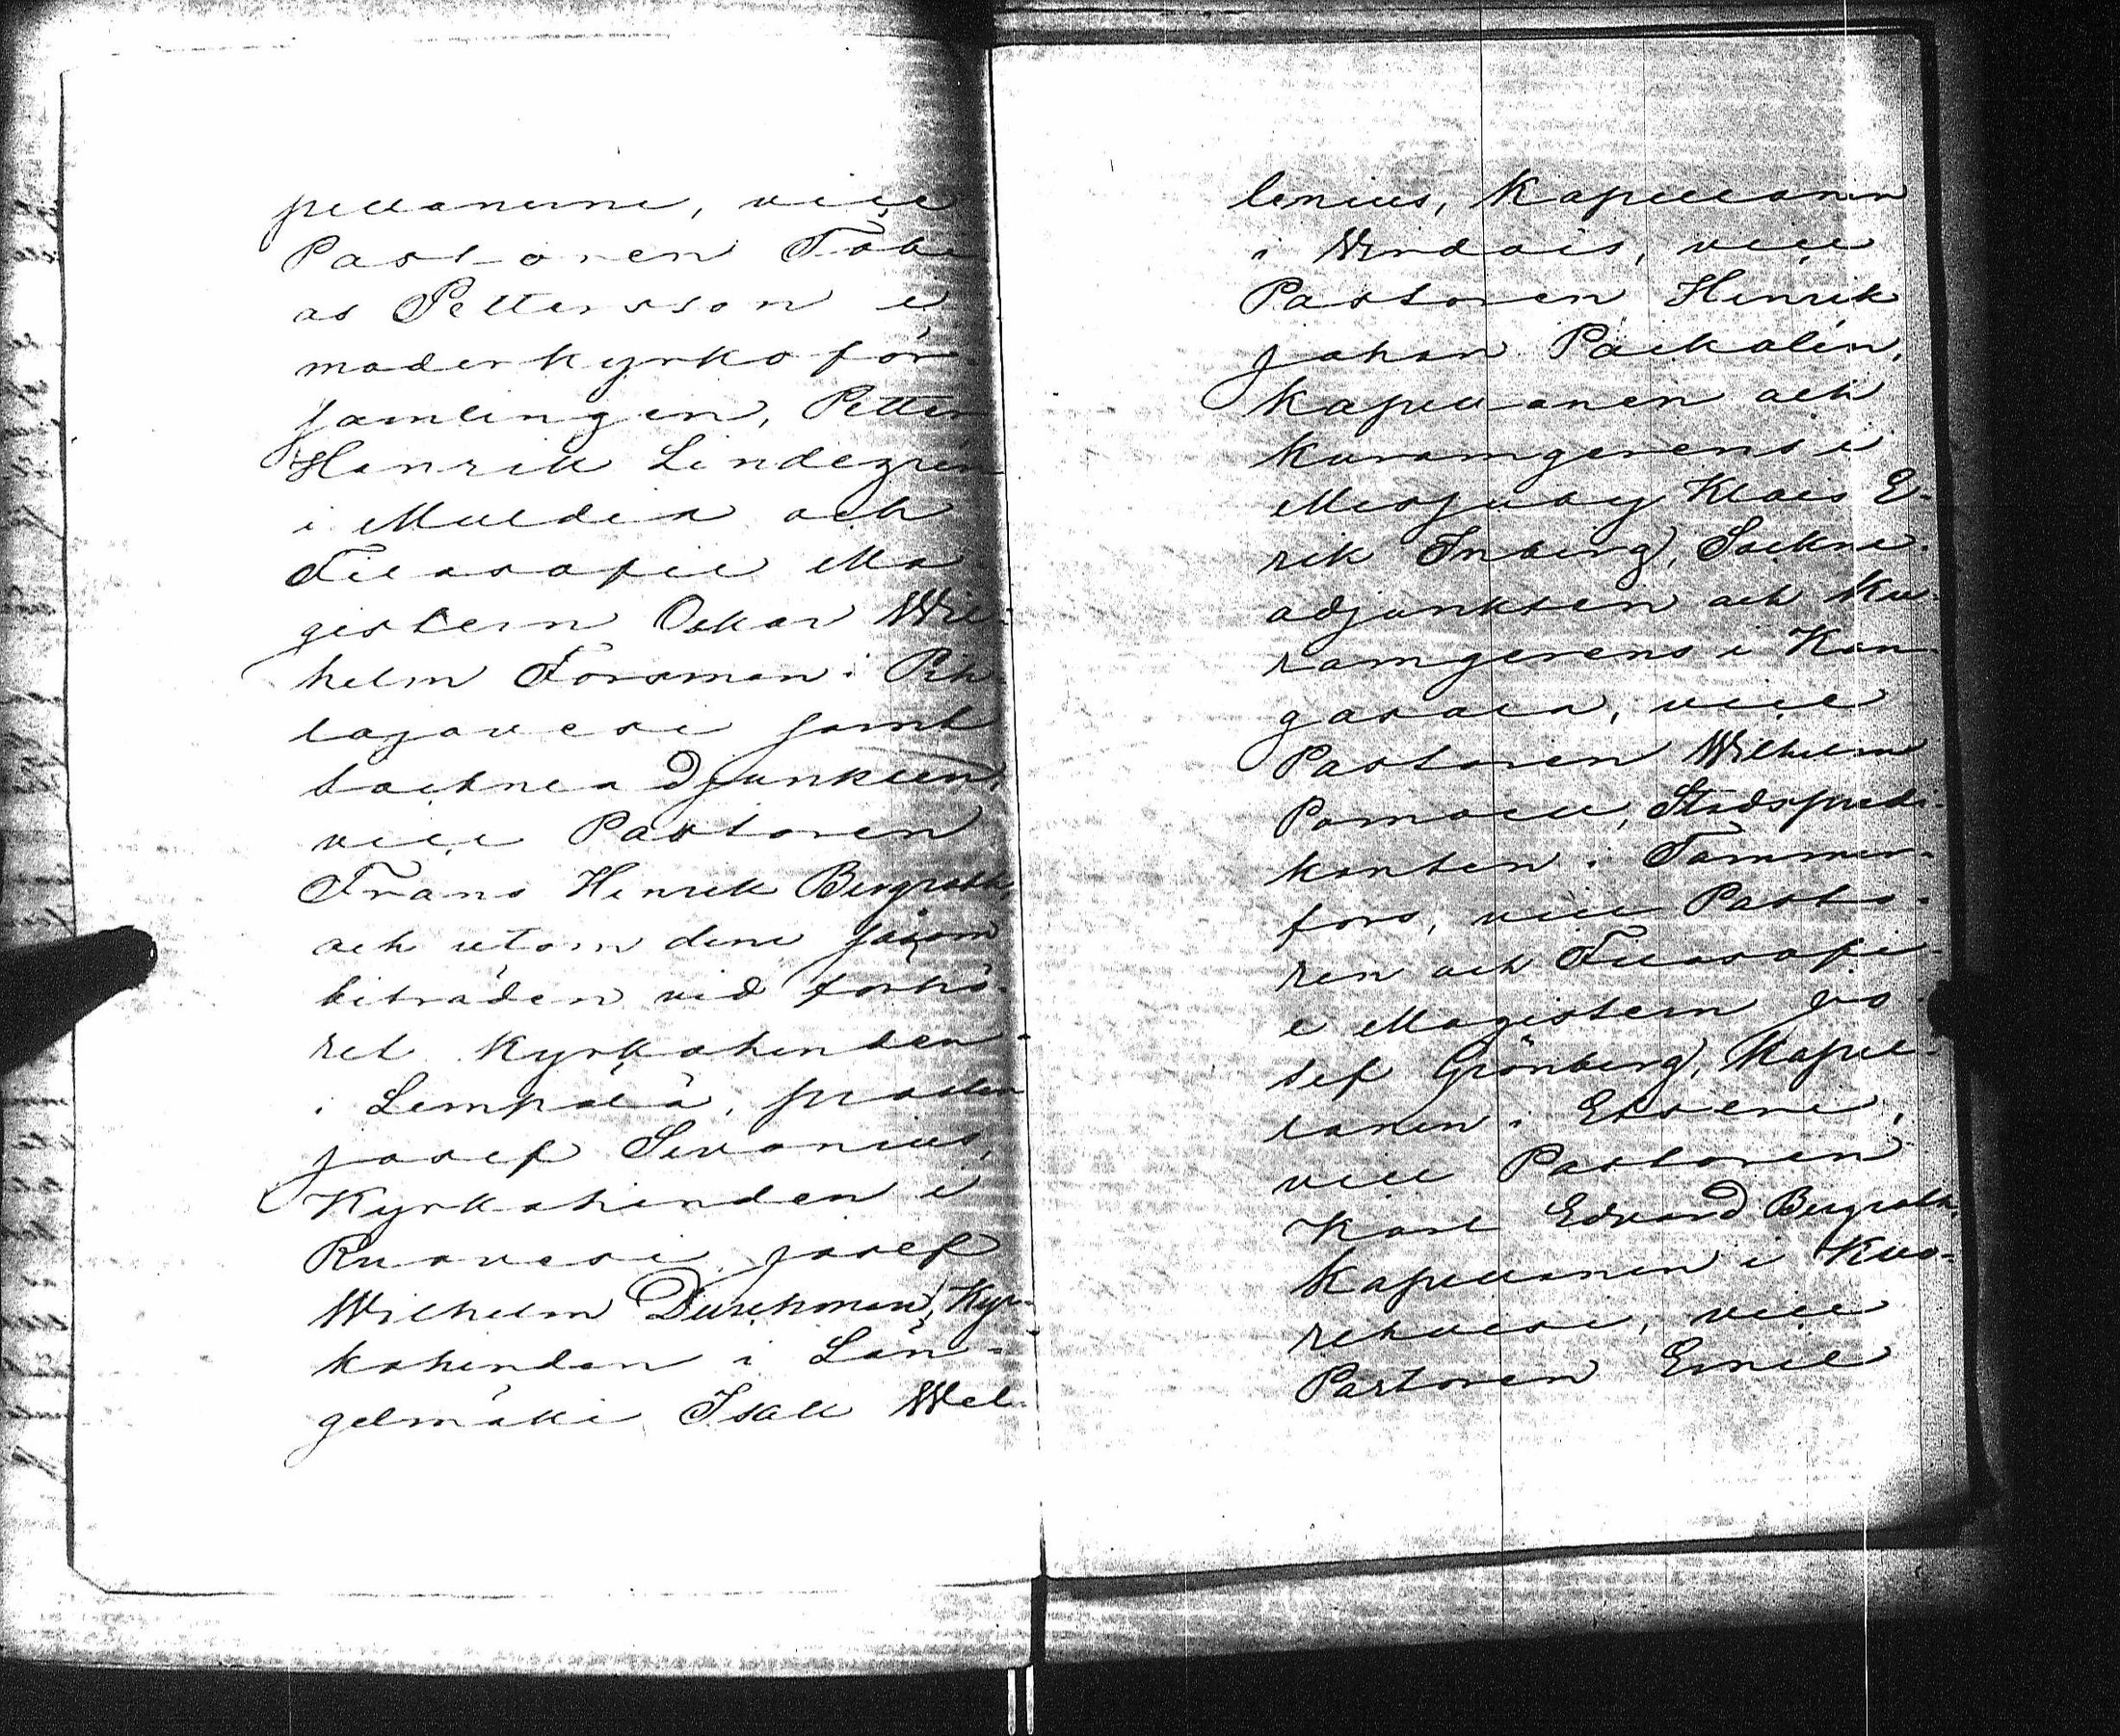 pellanerne, vice
Pastoren Tobi
as Pettersson i
moderkyrkoför-
samlingen, Petter
Henrik Lindegrén
i Multia och
Filosofie Ma-
gistern Oskar Wil-
helm Forsman i Pih-
lajavesi samt
sockneadjunkten,
vice Pastoren
Frans Henrik Bergroth,
och utom dene såsom
biträden vid förhö-
ret Kyrkoherden
i Lempälä, prosten
Josef Sevonius,
Kyrkoherden i
Ruovesi Josef
Wilhelm Durchman, Kyr-
koherden i Län-
gelmäki Isak Wel-
lenius, Kapellanen
i Virdois, vice
Pastoren Henrik
Johan Päckalén,
Kapellanen och
Kuramgerens i
Messuby Klas E-
rik Inberg, Sockne-
adjunkten och Ku-
ramgerens i Kan-
gasala, vice
Pastoren Wilhelm
Pomoell, Stadspredi-
kanten i Tammer-
fors, vice Pasto-
ren och Filosofi-
e Magistern Jo-
sef Grönberg, Kapel-
lanen i Etseri,
vice Pastoren
Karl Edvard Bergroth,
Kapellanen i Kuo-
rehvesi, vice
Pastoren Emil